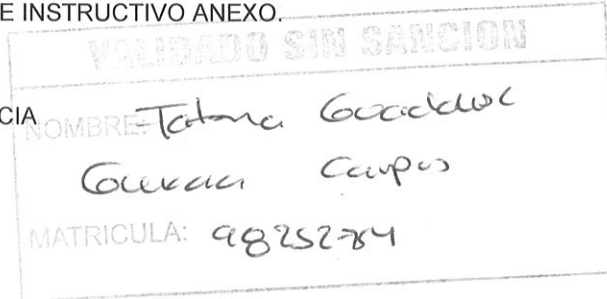 E INSTRUCTIVO ANEXO.
VALIDADO SIN SANCION
CIA
NOMBRE: Tatiana Guadalupe
Campos
MATRICULA: